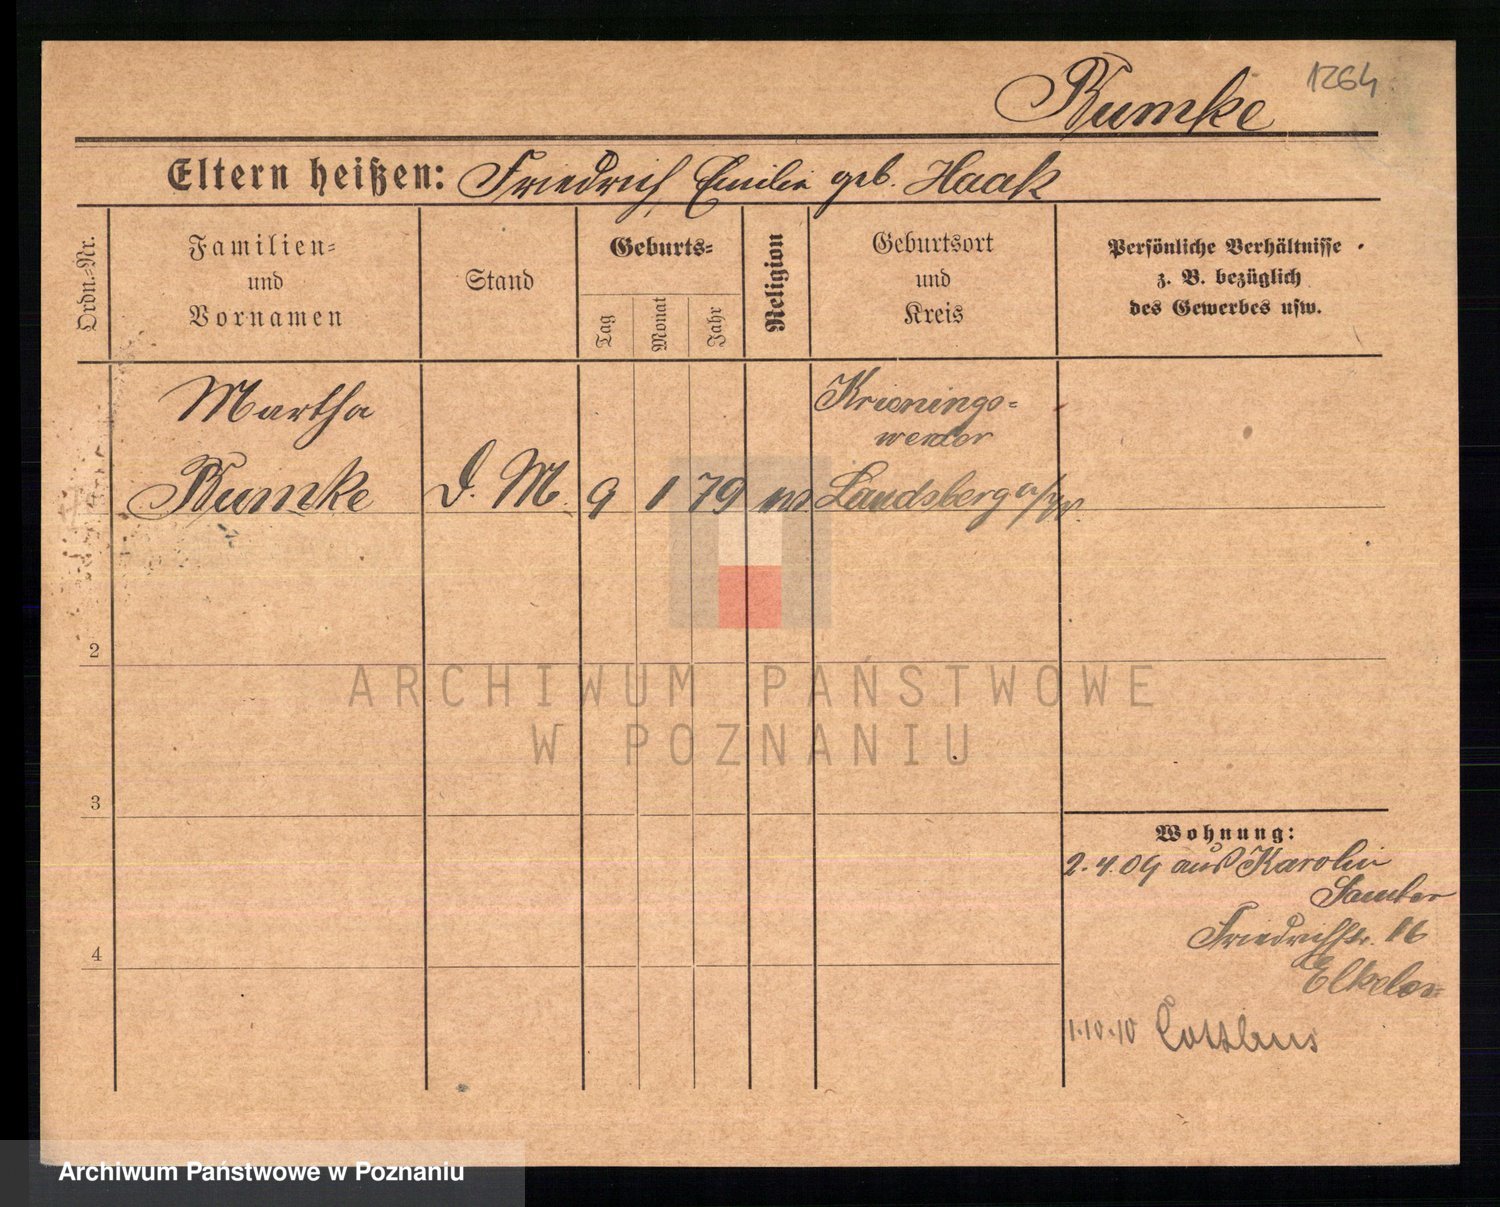 Rumke
1264
Eltern heißen: Friedrich, Emilie geb. Haak
Ordn.=Nr.
Familien=
und
Vornamen
Stand
Geburts=
Tag
Monat
Jahr
Religion
Geburtsort
und
Kreis
Persönliche Verhältnisse
z. B. bezüglich
des Gewerbes usw.
Martha
Rumke
D. M.
9
1
79
Krienings=
werder
Landsberg a/W.
2
3
4
Wohnung:
2.4.09 aus Karolin
Samter
Friedrichstr. 16
1.10.10 Cottbus
ARCHIWUM PAŃSTWOWE
W POZNANIU
Archiwum Państwowe w Poznaniu